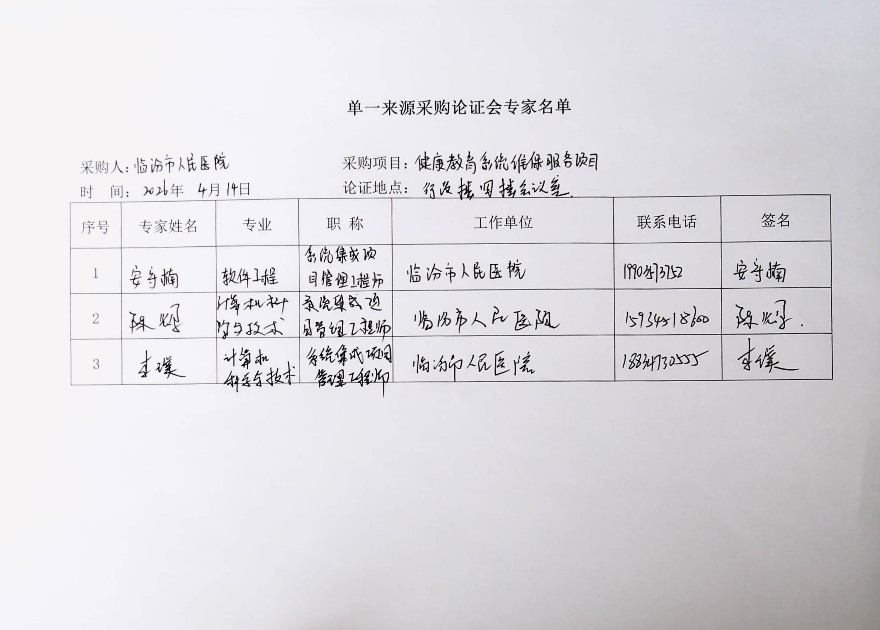 单一来源采购论证会专家名单
采购人：临汾市人民医院 采购项目：健康教育系统维保服务项目
时 间：2026年 4月14日 论证地点：行政楼四楼会议室
序号 专家姓名 专业 职 称 工作单位 联系电话 签名
1 安守楠 软件工程 系统集成项目管理工程师 临汾市人民医院 安守楠
2 陈 计算机科学与技术 系统集成项目管理工程师 临汾市人民医院 15934518600 陈
3 李璞 计算机科学与技术 系统集成项目管理工程师 临汾市人民医院 李璞